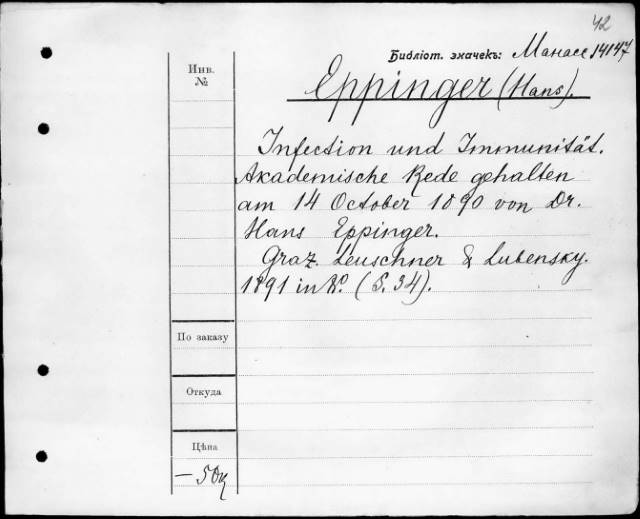 42
Библіот. значекъ: Манасе 14147
Инв.
№
Eppinger (Hans).
Infection und Immunität.
Akademische Rede gehalten
am 14 October 1890 von Dr.
Hans Eppinger.
Graz. Leuschner & Lubensky.
1891 in 8º. (S. 34).
По заказу
Откуда
Цѣна
— 50к